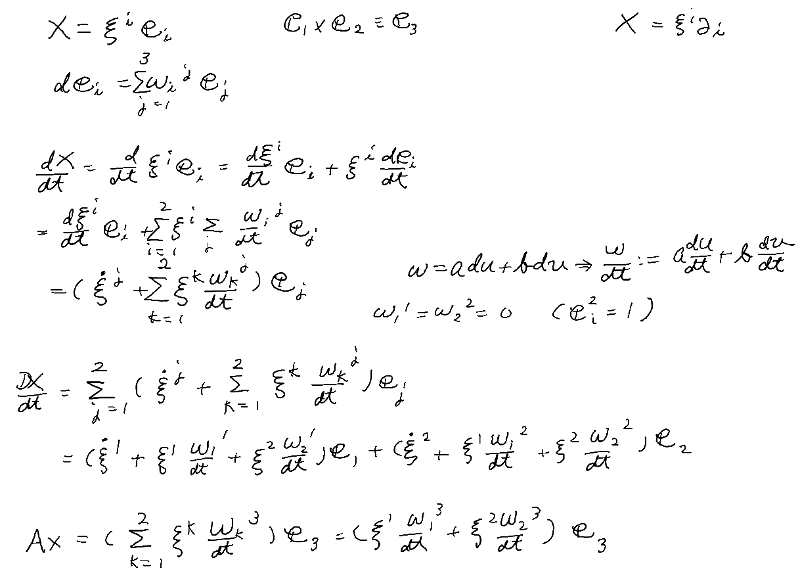 X = ξ^i e_i    e_1 × e_2 = e_3    X = ξ^i ∂_i
de_i = Σ_{j=1}^{3} ω_i^j e_j
dX/dt = d/dt ξ^i e_i = dξ^i/dt e_i + ξ^i de_i/dt
= dξ^i/dt e_i + Σ_{i=1}^{2} ξ^i Σ_j ω_i^j/dt e_j
= (ξ̇^j + Σ_{k=1}^{2} ξ^k ω_k^j/dt) e_j    ω = adu + bdu ⇒ ω/dt := a du/dt + b du/dt
ω_1^1 = ω_2^2 = 0    (e_i^2 = 1)
DX/dt = Σ_{j=1}^{2} (ξ̇^j + Σ_{k=1}^{2} ξ^k ω_k^j/dt) e_j
= (ξ̇^1 + ξ^1 ω_1^1/dt + ξ^2 ω_2^1/dt) e_1 + (ξ̇^2 + ξ^1 ω_1^2/dt + ξ^2 ω_2^2/dt) e_2
Ax = (Σ_{k=1}^{2} ξ^k ω_k^3/dt) e_3 = (ξ^1 ω_1^3/dt + ξ^2 ω_2^3/dt) e_3